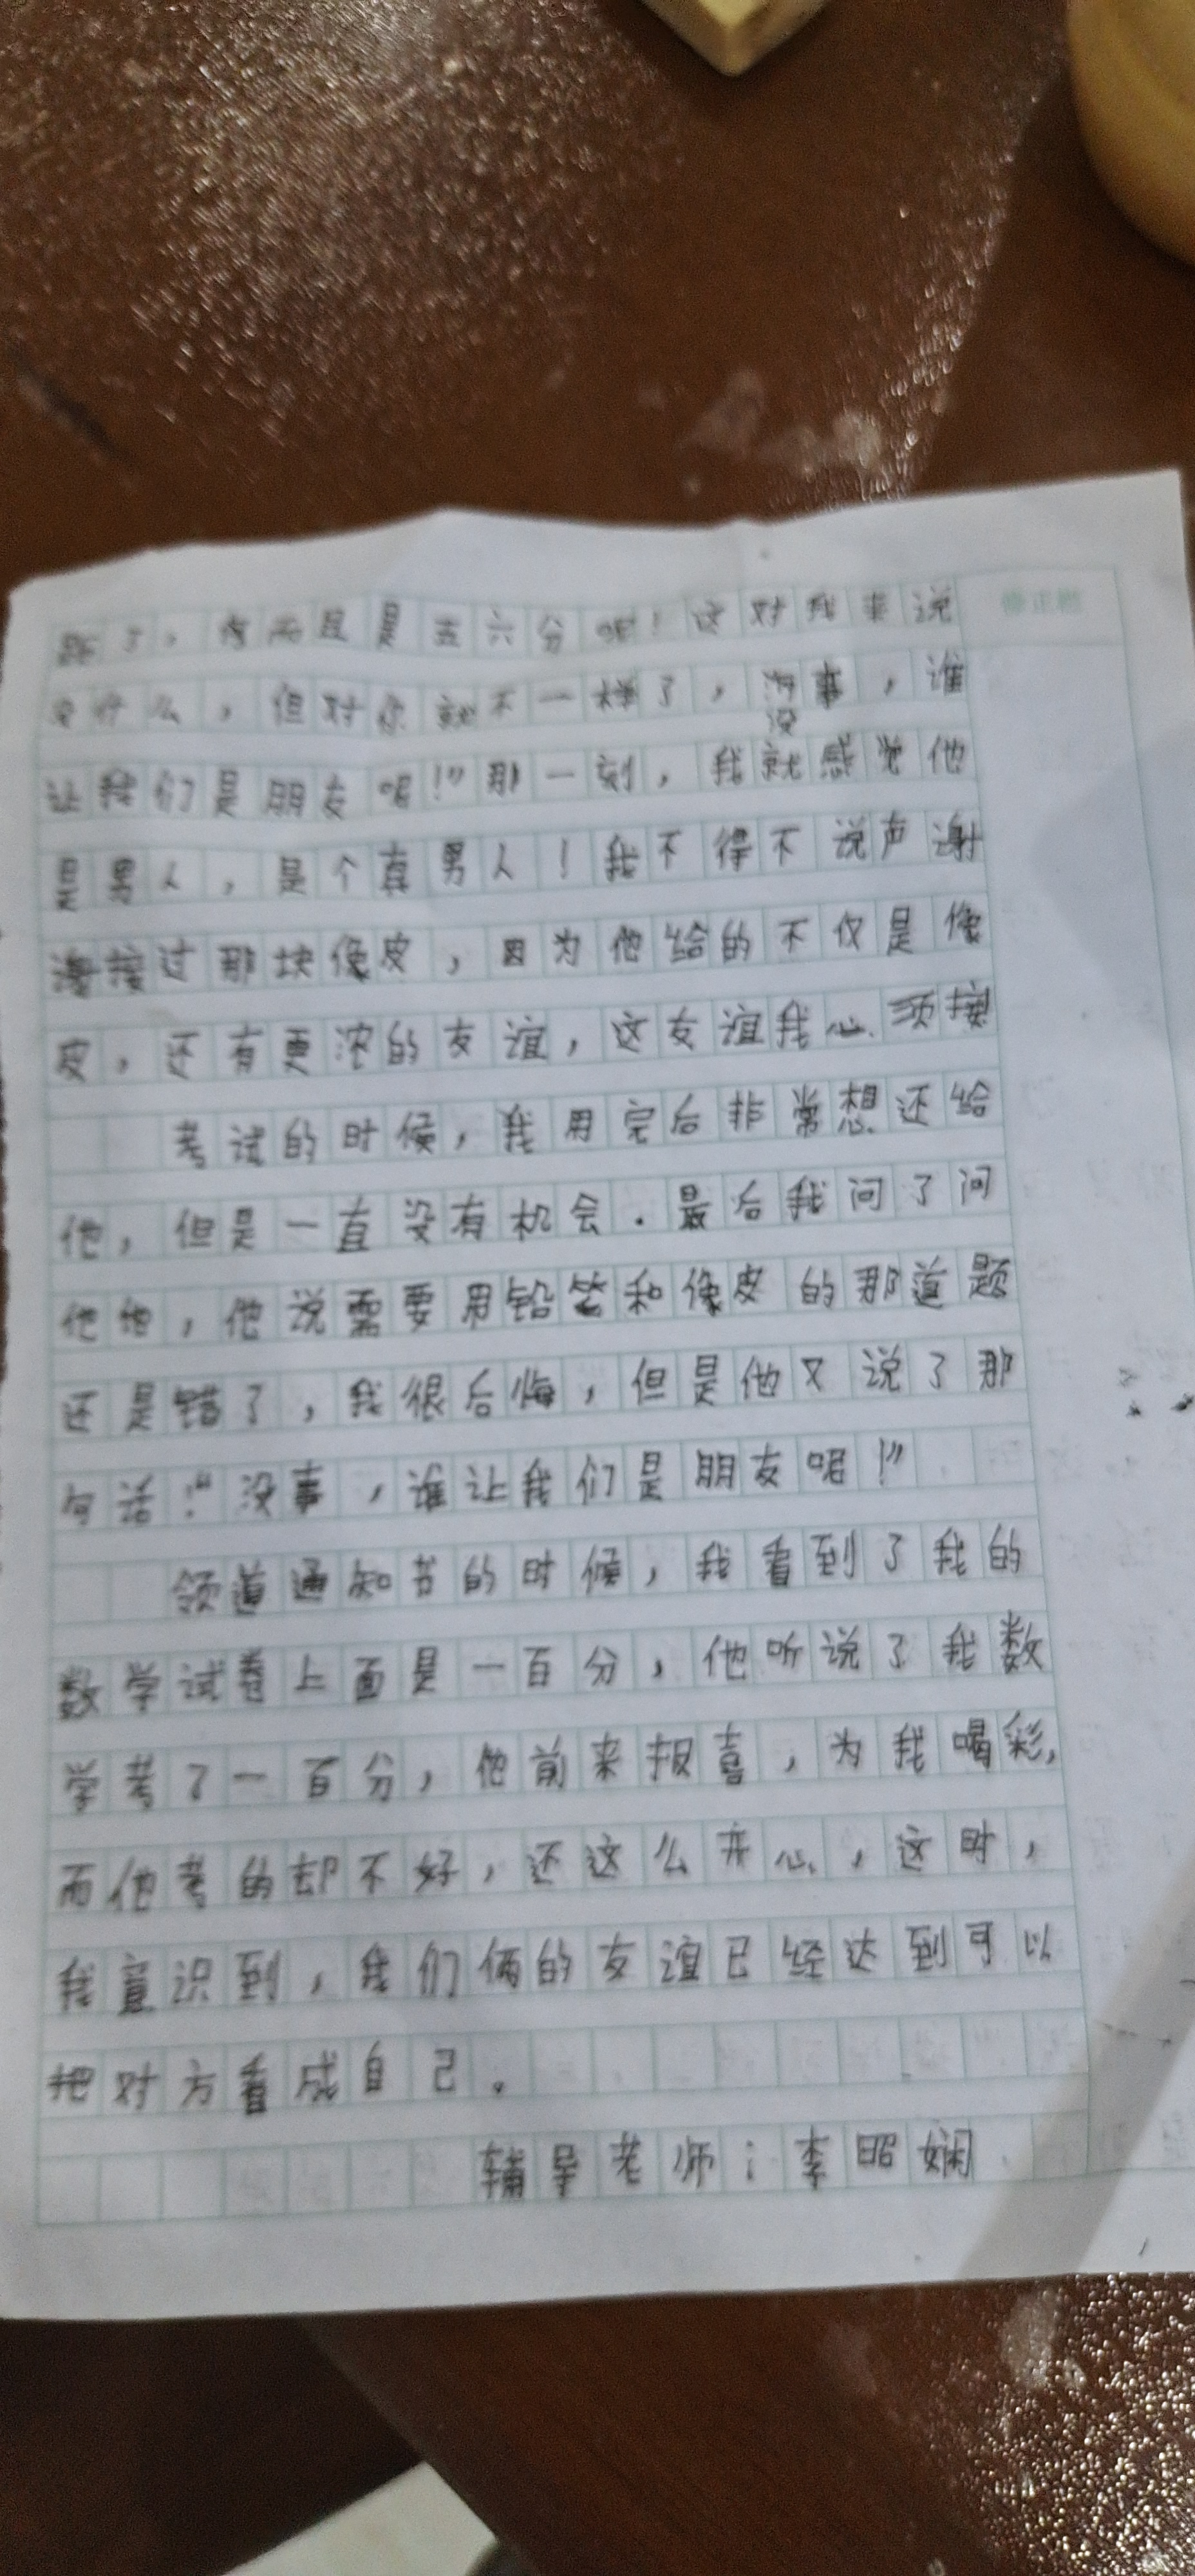 修正栏
了，而且是五六分呢！这对我来说
没什么，但对你就不一样了，没事，谁
让我们是朋友呢！”那一刻，我就感觉他
是男人，是个真男人！我不得不说声谢
谢接过那块像皮，因为他给的不仅是像
皮，还有更浓的友谊，这友谊我心须接
考试的时候，我用完后非常想还给
他，但是一直没有机会．最后我问了问
他他，他说需要用铅笔和像皮的那道题
还是错了，我很后悔，但是他又说了那
句话：“没事，谁让我们是朋友呢！”
领道通知书的时候，我看到了我的
数学试卷上面是一百分，他听说了我数
学考了一百分，他前来报喜，为我喝彩，
而他考的却不好，还这么开心，这时，
我意识到，我们俩的友谊已经达到可以
把对方看成自己。
辅导老师：李昭娴